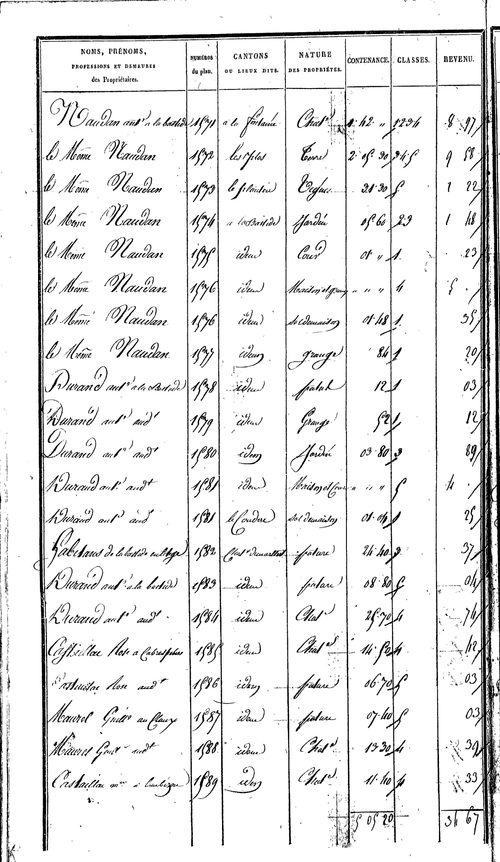 NOMS, PRÉNOMS, PROFESSIONS ET DEMEURES des Propriétaires. NUMÉROS du plan. CANTONS OU LIEUX DITS. NATURE DES PROPRIÉTÉS. CONTENANCE. CLASSES. REVENU.
Naudan ant.e a la bastide 1571 a la fontaine Chat.e 1 42 " 1234 8 97
le Même Naudan 1572 Terre 2 05 30 345 9 58
le Même Naudan 1573 31 30 5 1 22
le Même Naudan 1574 a la Bastide Jardin 05 60 23 1 48
le Même Naudan 1575 idem Cour 01 " 1 23
le Même Naudan 1576 idem Maison et grange " " " 4 5 "
le Même Naudan 1576 idem sol de maison 01 48 1 35
le Même Naudan 1577 idem grange 84 1 20
Durand ant.e a la Bastide 1578 idem patat 12 1 03
Durand ant.e aud.t 1579 idem Grange 52 1 12
Durand ant.e aud.t 1580 idem Jardin 03 80 3 89
Durand ant.e aud.t 1581 idem Maison et Cour " " " 5 4 "
Durand ant.e aud.t 1581 le Couderc sol de maison 01 04 1 25
habitans de la bastide 1582 pature 24 40 3 37
Durand ant.e a la bastide 1583 idem pature 08 80 5 04
Durand ant.e aud.t 1584 idem Chat.e 25 70 4 74
Castaillac Rose a 1585 idem Chat.e 14 52 4 42
Rose aud.t 1586 idem pature 06 70 5 03
Maurel Guill.e au Claux 1587 idem pature 07 40 5 03
Maurel Guill.e aud.t 1588 idem Chat.e 13 30 4 39
1589 idem Chat.e 11 40 4 33
5 05 20 36 67